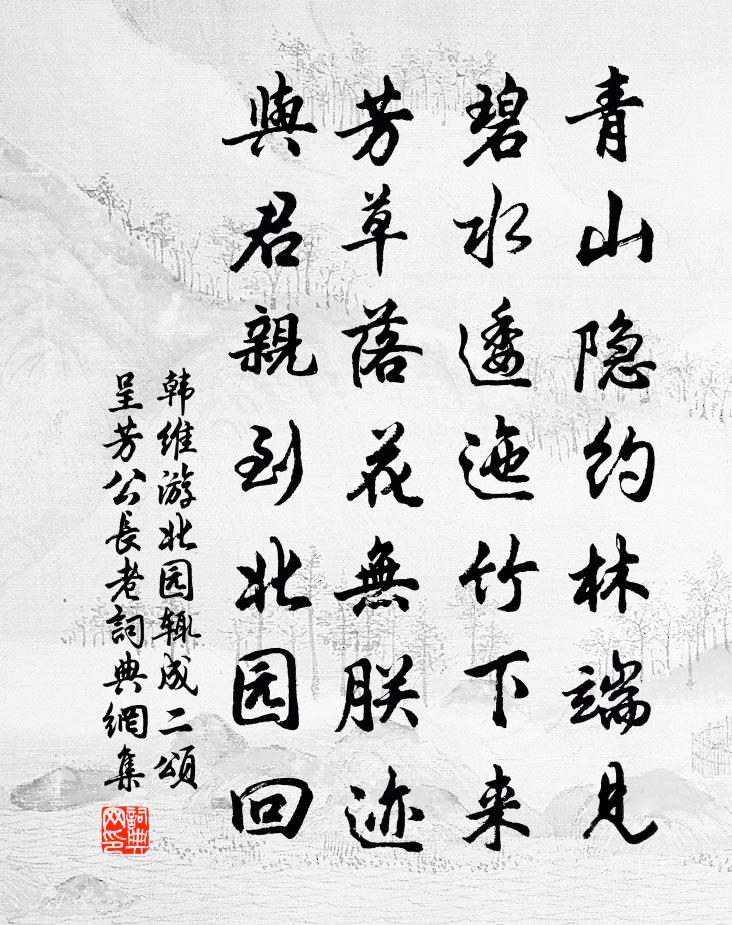 青山隐约林端見
碧水逶迤竹下来
芳草落花無朕迹
與君親到北园回
韩维游北园辄成二頌
呈芳公長老詞典網集
詞典网印